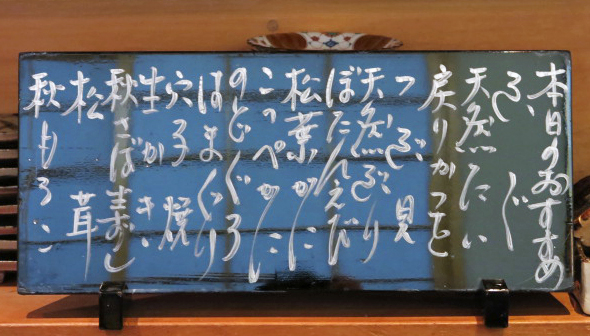 本日のおすすめ
ふぐ
天然たい
戻りかつを
つぶ貝
天然ぶり
ぼたんえび
松葉がに
こっぺがに
のどぐろ
はまぐり
穴子焼
生かき
秋さば生ずし
松茸
秋もろこ